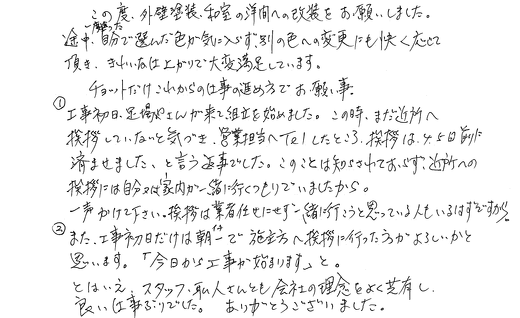 この度、外壁塗装、和室の洋間への改装をお願いしました。
途中、自分で選んだ色が気に入らず別の色への変更にも快く応じて
頂き、きれいな仕上がりで大変満足しています。
チョットだけこれからの仕事の進め方でお願い事。
① 工事初日、足場やさんが来て組立を始めました。この時、まだ近所へ
挨拶していないと気づき、営業担当へTelしたところ、挨拶は、4.5日前に
済ませました、と言う返事でした。このことは知らされておらず、近所への
挨拶には自分又は家内が一緒に行くつもりでいましたから。
一声かけて下さい。挨拶は業者任せにせず一緒に行こうと思っている人もいるはずですから。
② また、工事初日だけは朝一で施主方へ挨拶に行った方がよろしいかと
思います。「今日から工事が始まります」と。
とはいえ、スタッフ、職人さんとも会社の理念をよく共有し、
良い仕事ぶりでした。ありがとうございました。